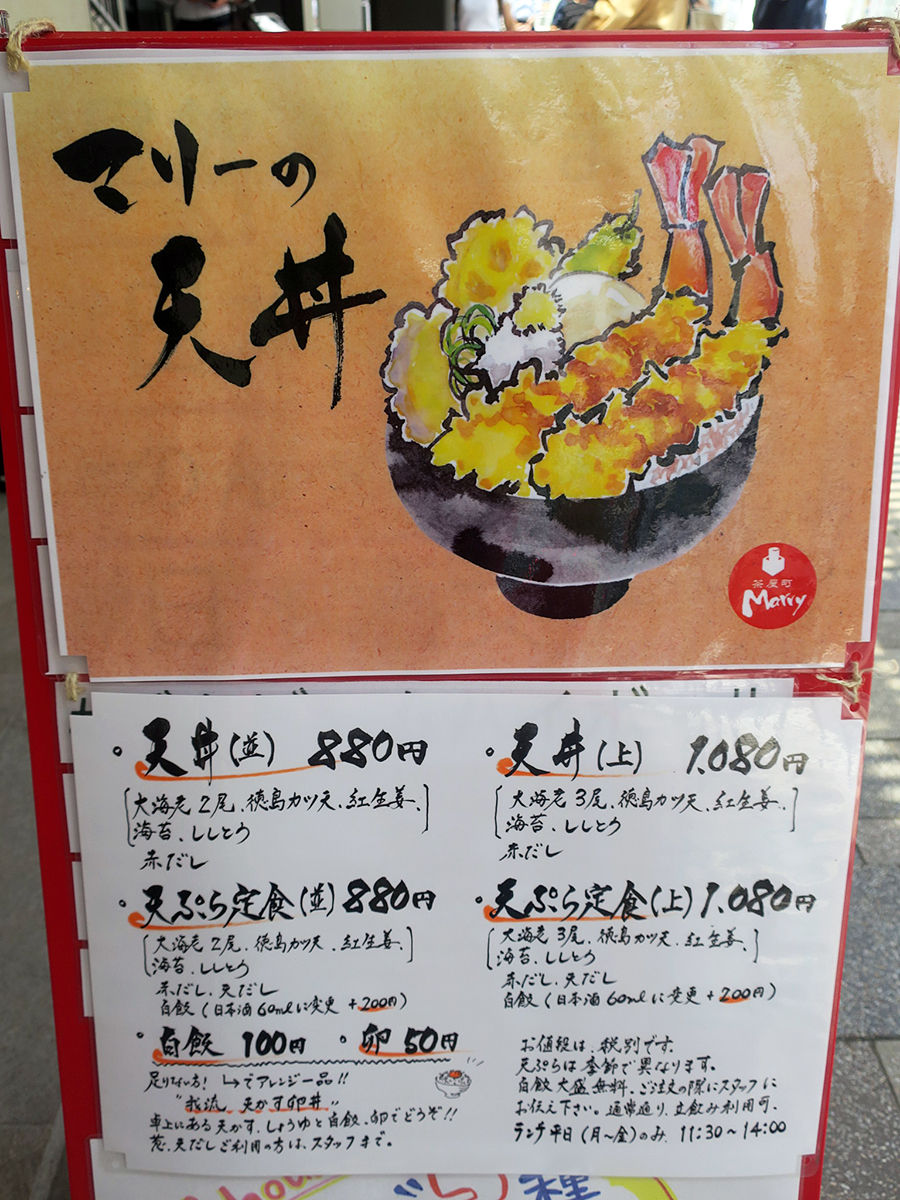 マリーの
天丼
茶屋町
Marry
・天丼(並) 880円
[大海老2尾、徳島カツ天、紅生姜、
海苔、ししとう]
赤だし
・天丼(上) 1,080円
[大海老3尾、徳島カツ天、紅生姜、
海苔、ししとう]
赤だし
・天ぷら定食(並) 880円
[大海老2尾、徳島カツ天、紅生姜、
海苔、ししとう]
赤だし、天だし
白飯(日本酒60mlに変更+200円)
・天ぷら定食(上) 1,080円
[大海老3尾、徳島カツ天、紅生姜、
海苔、ししとう]
赤だし、天だし
白飯(日本酒60mlに変更+200円)
・白飯 100円 ・卵 50円
足りない方! ↳でアレンジ一品!!
"我流 天かす卵丼"
卓上にある天かす、しょうゆと白飯、卵でどうぞ!!
葱、天だしご利用の方は、スタッフまで。
お値段は、税別です。
天ぷらは季節で異なります。
白飯大盛無料、ご注文の際にスタッフに
お伝え下さい。通常通り、立飲み利用可。
ランチ平日(月〜金)のみ 11:30〜14:00